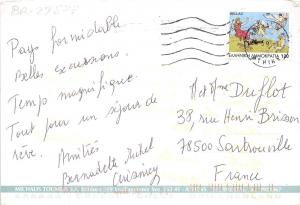 BA-29527
Pays formidable
Belles excursions.
Temps magnifique.
Tout pour un séjour de
rêve. Amitiés
Bernadette Michel
HELLAS
ΕΛΛΗΝΙΚΗ ΔΗΜΟΚΡΑΤΙΑ 120
M et Mme Duflot
38, rue Henri Brisson
78500 Sartrouville
France
MICHALIS TOUMBIS S.A.